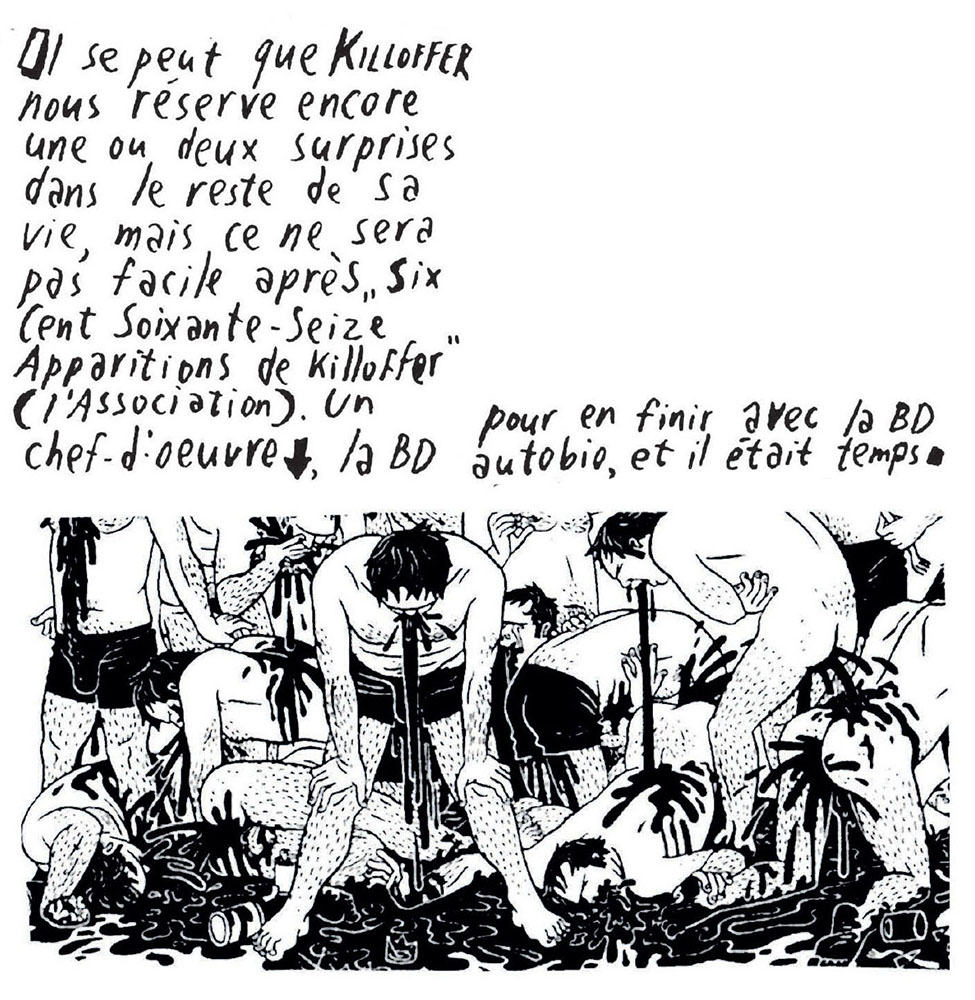 Il se peut que KILLOFFER
nous réserve encore
une ou deux surprises
dans le reste de sa
vie, mais ce ne sera
pas facile après „Six
Cent Soixante-Seize
Apparitions de Killoffer"
(l'Association). Un
chef-d'oeuvre, la BD
pour en finir avec la BD
autobio, et il était temps.